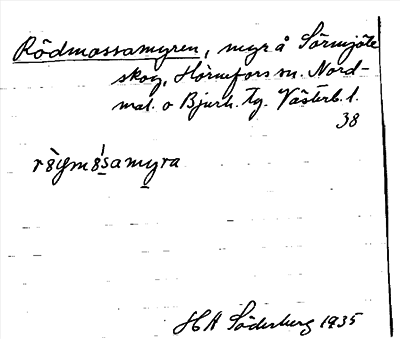 Rödmossamyren, myr å Sörmjöle
skog, Hörnefors sn. Nord-
mal. o Bjurh. tg. Västerb. l.
38
H A Söderberg 1935